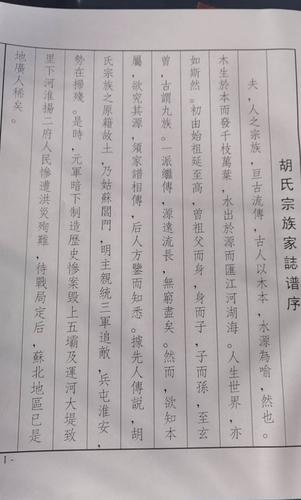 胡氏宗族家誌谱序
夫，人之宗族，亘古流傳，古人以木本，水源為喻，然也。
木生於本而發千枝萬葉，水出於源而匯江河湖海。人生世界，亦
如斯然。初由始祖延至高，曾祖父而身，身而子，子而孫，至玄
曾，古謂九族。一派繼傳，源遠流長，無窮盡矣。然而，欲知本
屬，欲究其源，須家譜相傳，后人方鑒而知悉。據先人傳説，胡
氏宗族之原籍故土，乃姑蘇閶門，明主親統三軍追敵，兵屯淮安，
勢在掃殘。是時，元軍暗下制造歷史慘案毁上五壩及運河大堤致
里下河淮揚二府人民慘遭洪災殉難，待戰局定后，蘇北地區已是
地廣人稀矣。
1-